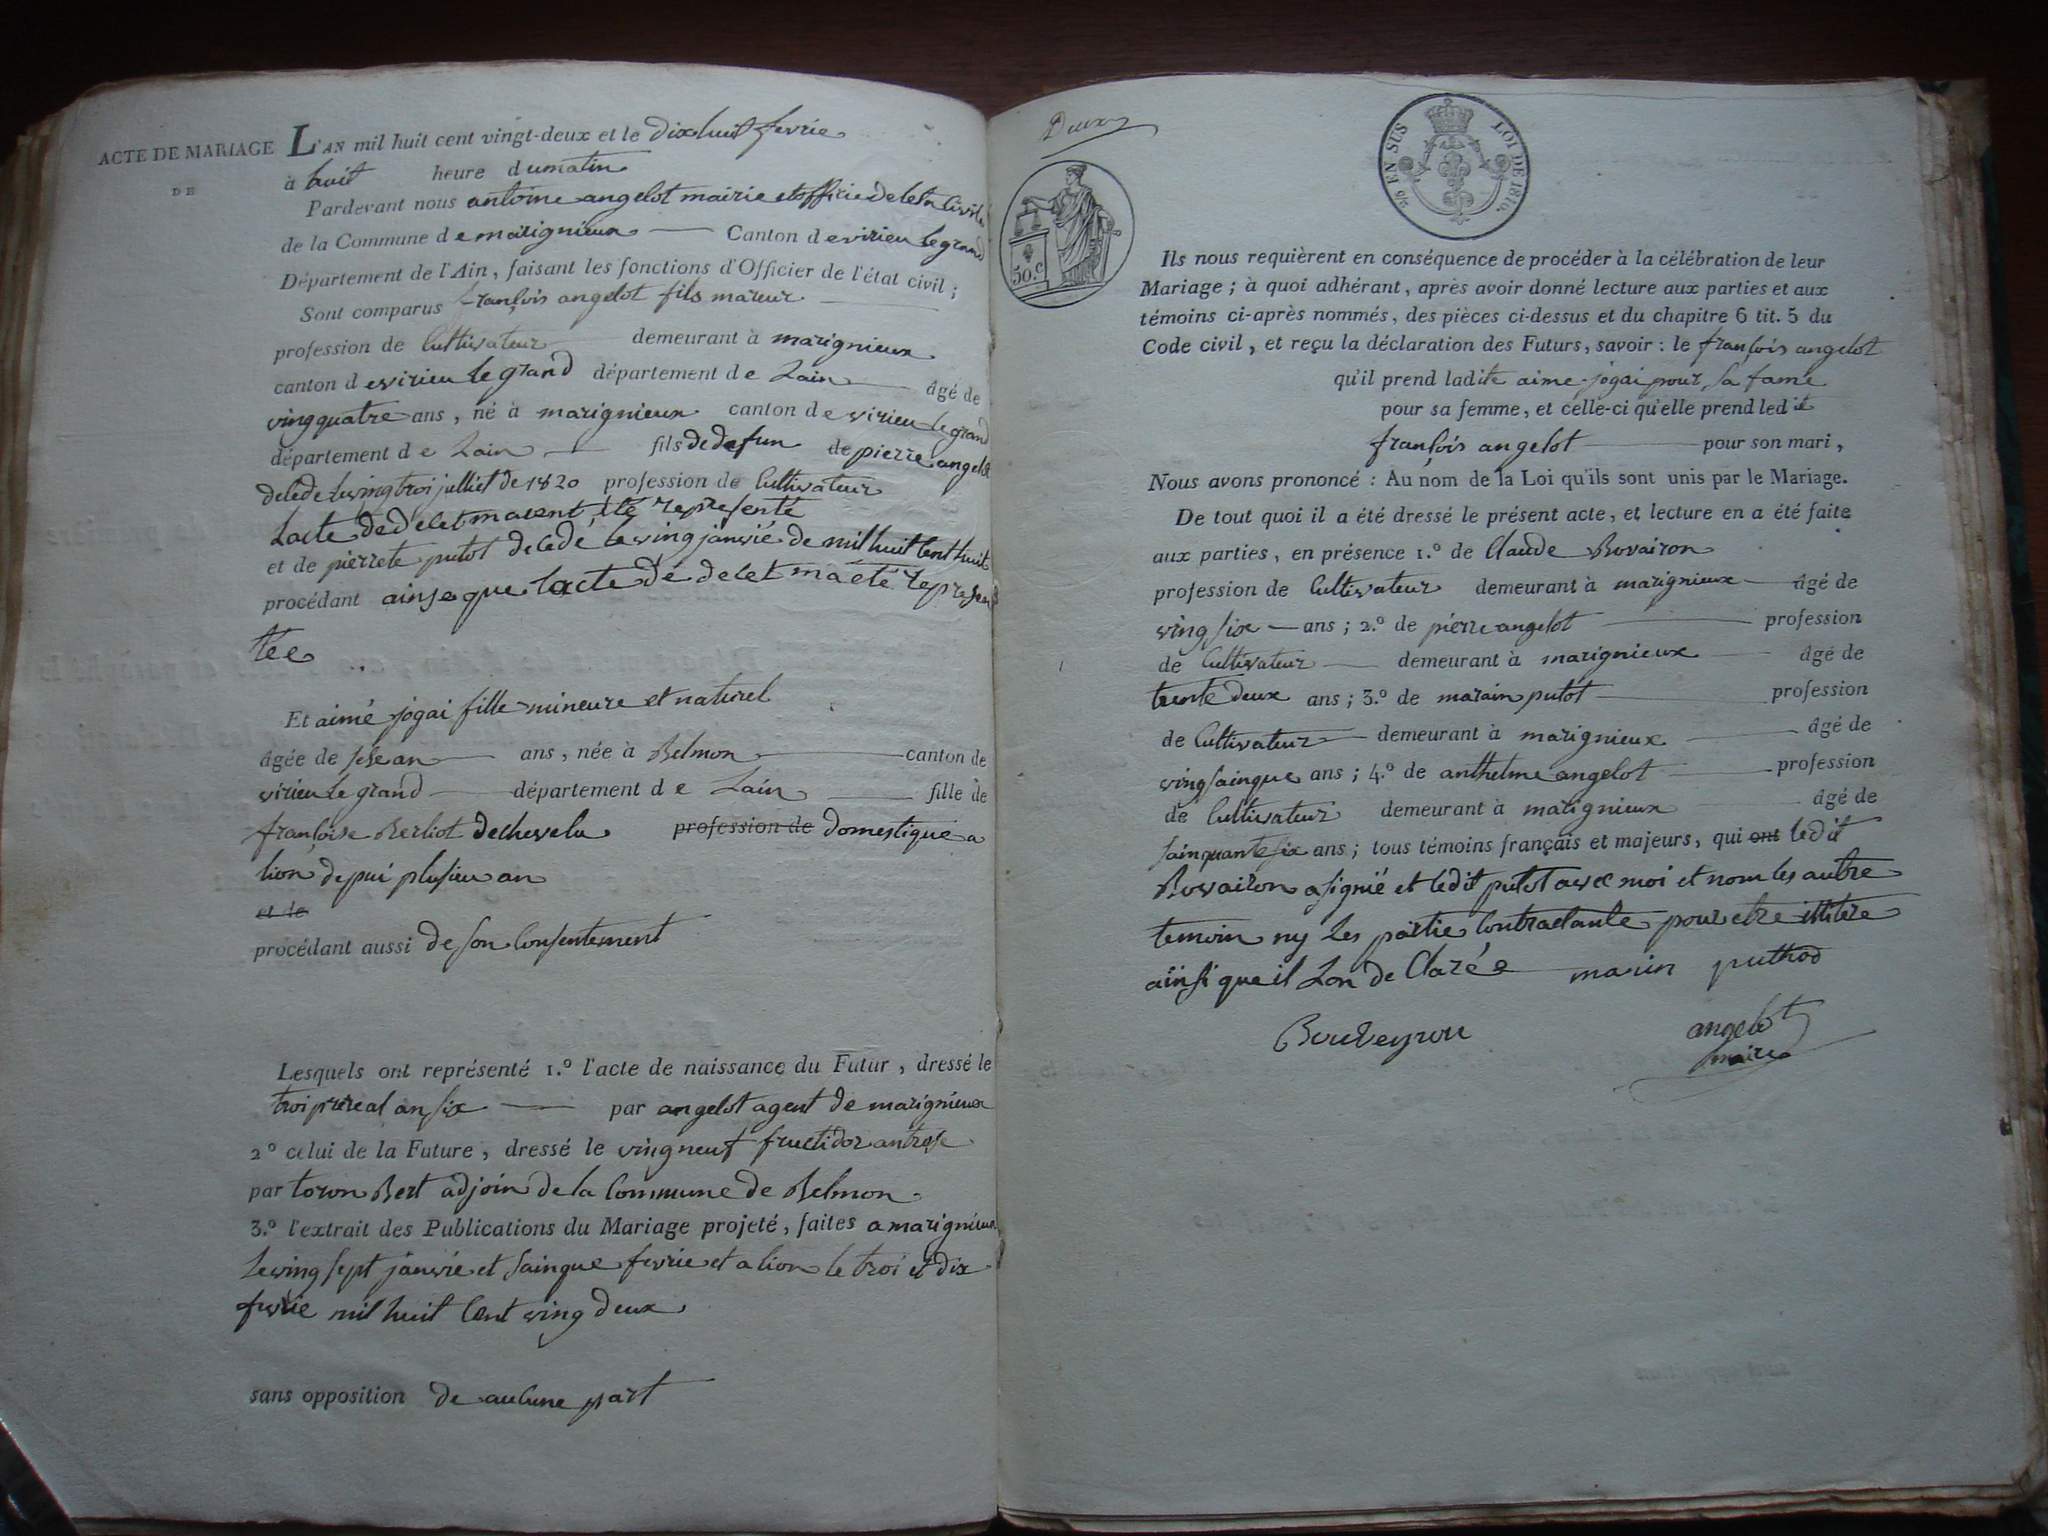 ACTE DE MARIAGE
DE
L'AN mil huit cent vingt-deux et le dixhuit fevrie
à huit heure dumatin
Pardevant nous antoine angelot mairie et officie de leta Civile
de la Commune de marignieux Canton devirieu legrand
Département de l'Ain, faisant les fonctions d'Officier de l'état civil;
Sont comparus françois angelot fils mareur
profession de Cultivateur demeurant à marignieux
canton devirieu le grand département de Lain âgé de
vingquatre ans, né à marignieux canton de virieu legrand
département de Lain fils de defun de pierre angelot
delede levingtroi julliet de 1820 profession de Cultivateur
Lacte de delet maent été represente
et de pierrete putot delede levingjanvié de mil huit Cent huit
procédant ainse que lacte de delet ma eté represen
tée
Et aimé jogai fille mineure et naturel
âgée de sese an ans, née à Belmon canton de
virieu le grand département de Lain fille de
françoise Berliot dechevelu profession de domestique a
lion depui plusieu an
et de
procédant aussi de son Consentement
Lesquels ont représenté 1.º l'acte de naissance du Futur, dressé le
troi prereal an six par angelot agent de marignieux
2º celui de la Future, dressé le vingneuf fructidor antrese
par toron Bert adjoin de la Commune de Belmon
3.º l'extrait des Publications du Mariage projeté, faites a marignieux
Levingsept janvié et sainque fevrie et a lion le troi et dix
fevrie mil huit Cent ving deux
sans opposition de aucune part
Deux
50.c
5/10 EN SUS LOI DE 1816.
Ils nous requièrent en conséquence de procéder à la célébration de leur
Mariage; à quoi adhérant, après avoir donné lecture aux parties et aux
témoins ci-après nommés, des pièces ci-dessus et du chapitre 6 tit. 5 du
Code civil, et reçu la déclaration des Futurs, savoir: le françois angelot
qu'il prend ladite aime jogai pour sa fame
pour sa femme, et celle-ci qu'elle prend ledit
françois angelot pour son mari,
Nous avons prononcé: Au nom de la Loi qu'ils sont unis par le Mariage.
De tout quoi il a été dressé le présent acte, et lecture en a été faite
aux parties, en présence 1.º de Claude Bovairon
profession de Cultivateur demeurant à marignieux âgé de
ving six ans; 2.º de pierre angelot profession
de Cultivateur demeurant à marignieux âgé de
trente deux ans; 3.º de marain putot profession
de Cultivateur demeurant à marignieux âgé de
vingsainque ans; 4.º de anthelme angelot profession
de Cultivateur demeurant à marignieux âgé de
sainquantesix ans; tous témoins français et majeurs, qui ont ledit
Bovairon a signié et ledit putot avec moi et nom les autre
temoin ny Les partie Contractante pour etre illitere
ainsi que il Lon de Claré marin puthod
Bouveyron angelot
maire